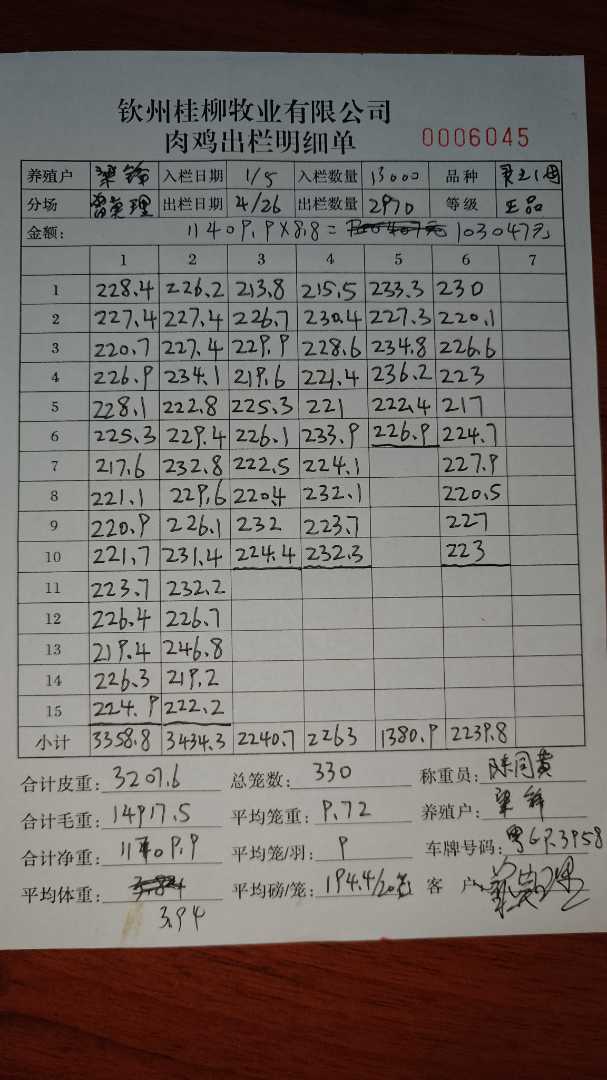 钦州桂柳牧业有限公司
肉鸡出栏明细单 0006045
养殖户 梁锋 入栏日期 1/5 入栏数量 13000 品种
分场 出栏日期 4/26 出栏数量 2970 等级 正品
金额: 11409.9×8.8= 103047元
1 2 3 4 5 6 7
1 228.4 226.2 213.8 215.5 233.3 230
2 227.4 227.4 226.7 230.4 227.3 220.1
3 220.7 227.4 229.9 228.6 234.8 226.6
4 226.9 234.1 219.6 221.4 236.2 223
5 228.1 222.8 225.3 221 222.4 217
6 225.3 229.4 226.1 233.9 226.9 224.7
7 217.6 232.8 222.5 224.1 227.9
8 221.1 229.6 220.4 232.1 220.5
9 220.9 226.1 232 223.7 227
10 221.7 231.4 224.4 232.3 223
11 223.7 232.2
12 226.4 226.7
13 219.4 246.8
14 226.3 219.2
15 224.9 222.2
小计 3358.8 3434.3 2240.7 2263 1380.9 2239.8
合计皮重: 3207.6 总笼数: 330 称重员:
合计毛重: 14917.5 平均笼重: 9.72 养殖户: 梁锋
合计净重: 平均笼/羽: 9 车牌号码:
平均体重: 3.84 平均磅/笼: 194.4/20笼 客户:
3.94